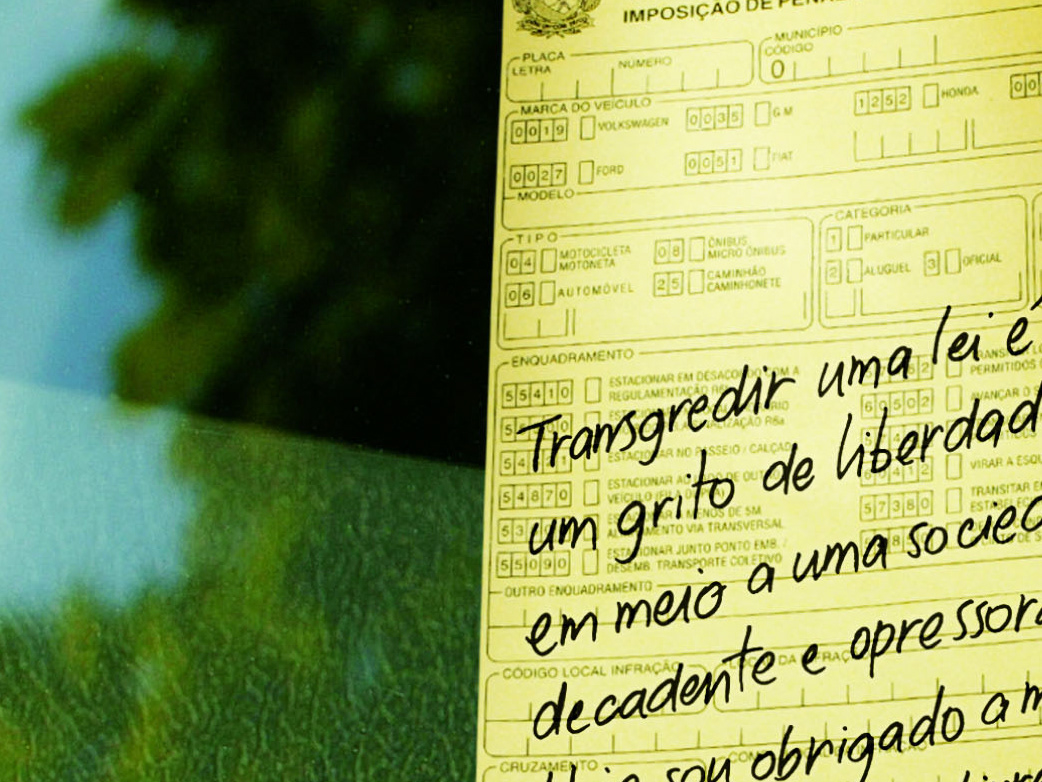 IMPOSIÇÃO DE
PLACA
LETRA NÚMERO
MUNICÍPIO
CÓDIGO
0
MARCA DO VEÍCULO
0019 VOLKSWAGEN 0035 GM 1252 HONDA 00
0027 FORD 0051 FIAT
MODELO
TIPO
04 MOTOCICLETA MOTONETA 08 ÔNIBUS MICRO ÔNIBUS
06 AUTOMÓVEL 25 CAMINHÃO CAMINHONETE
CATEGORIA
1 PARTICULAR
2 ALUGUEL 3 OFICIAL
ENQUADRAMENTO
55410 ESTACIONAR EM DESACORDO COM A
REGULAMENTAÇÃO
ESTACIONAR NO PASSEIO / CALÇADA
54870 ESTACIONAR AO LADO DE
VEÍCULO
MENOS DE 5M
ALINHAMENTO VIA TRANSVERSAL
55090 ESTACIONAR JUNTO PONTO EMB. /
DESEMB. TRANSPORTE COLETIVO
PERMITIDOS
60502 AVANÇAR O
VIRAR A
57380 TRANSITAR
OUTRO ENQUADRAMENTO
CÓDIGO LOCAL INFRAÇÃO
CRUZAMENTO
Transgredir uma lei é
um grito de liberdad
em meio a uma socied
decadente e opressora
sou obrigado a m